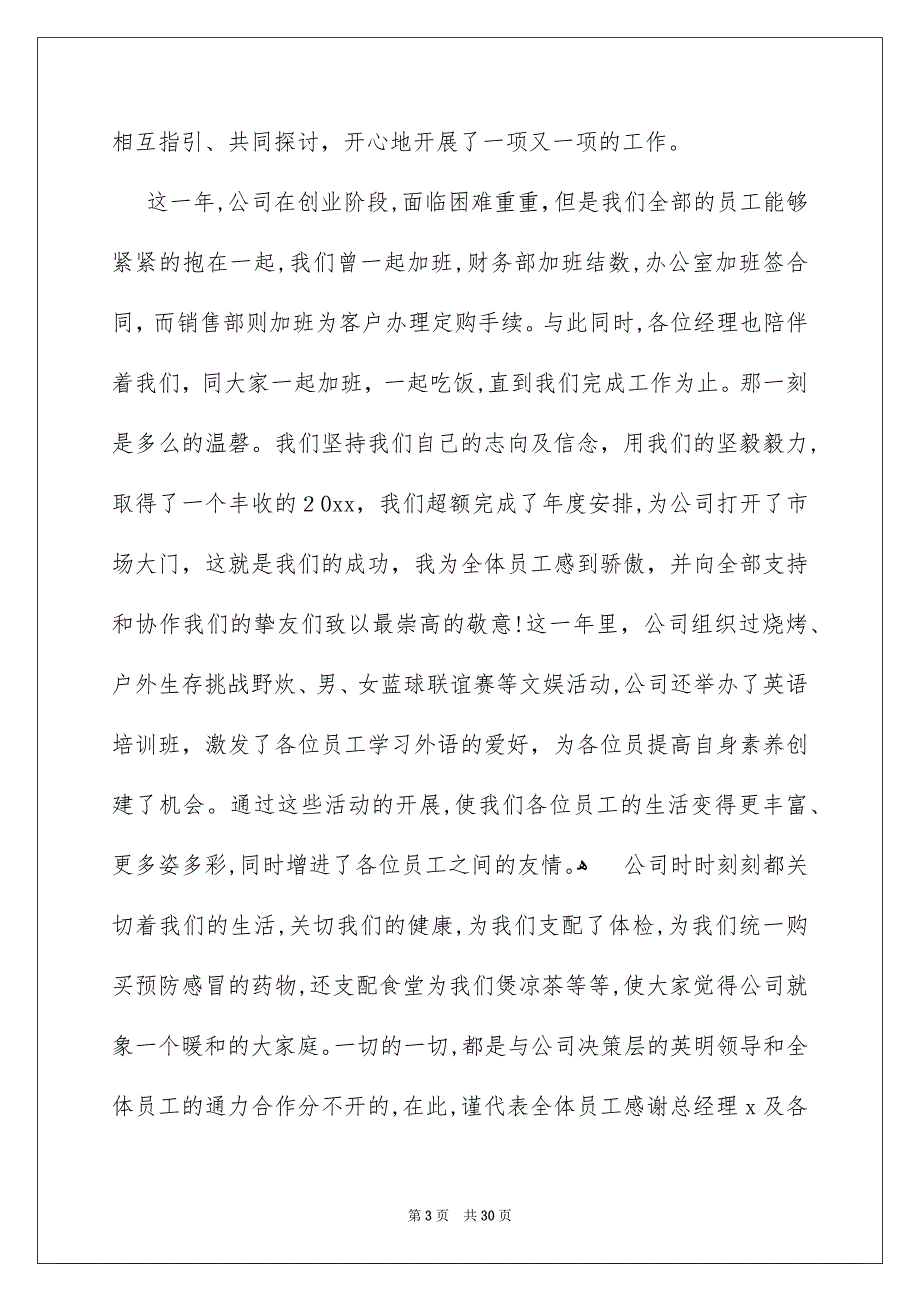 相互指引、共同探讨，开心地开展了一项又一项的工作。
这一年,公司在创业阶段,面临困难重重，但是我们全部的员工能够
紧紧的抱在一起,我们曾一起加班,财务部加班结数,办公室加班签合
同，而销售部则加班为客户办理定购手续。与此同时,各位经理也陪伴
着我们，同大家一起加班，一起吃饭,直到我们完成工作为止。那一刻
是多么的温磬。我们坚持我们自己的志向及信念，用我们的坚毅毅力,
取得了一个丰收的２0xx，我们超额完成了年度安排,为公司打开了市
场大门，这就是我们的成功，我为全体员工感到骄傲，并向全部支持
和协作我们的挚友们致以最崇高的敬意!这一年里，公司组织过烧烤、
户外生存挑战野炊、男、女蓝球联谊赛等文娱活动,公司还举办了英语
培训班，激发了各位员工学习外语的爱好，为各位员提高自身素养创
建了机会。通过这些活动的开展,使我们各位员工的生活变得更丰富、
更多姿多彩,同时增进了各位员工之间的友情。ﻫ 公司时时刻刻都关
切着我们的生活,关切我们的健康,为我们支配了体检,为我们统一购
买预防感冒的药物,还支配食堂为我们煲凉茶等等,使大家觉得公司就
象一个暖和的大家庭。一切的一切,都是与公司决策层的英明领导和全
体员工的通力合作分不开的,在此,谨代表全体员工感谢总经理 x 及各
第 3 页 共 30 页